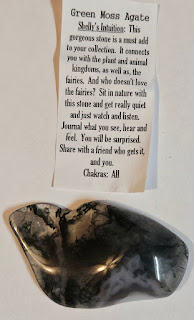 Green Moss Agate
Shelly's Intuition: This
gorgeous stone is a must add
to your collection. It connects
you with the plant and animal
kingdoms, as well as, the
fairies. And who doesn't love
the fairies? Sit in nature with
this stone and get really quiet
and just watch and listen.
Journal what you see, hear and
feel. You will be surprised.
Share with a friend who gets it,
and you.
Chakras: All